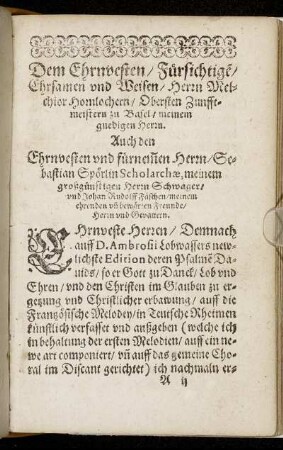 Dem Ehrnvesten / Fürsichtigē /
Ehrsamen vnd Weisen / Herrn Mel-
chior Hornlocheren / Obersten Zunfft-
meistern zu Basel / meinem
gnedigen Herrn.
Auch den
Ehrnvesten vnd fürnem̄en Herrn / Se-
bastian Spörlin Scholarchæ, meinem
großgünstigen Herrn Schwager /
vnd Johan Rudolff Fäschen / meinem
ehrenden vn̄ bewärten Freunde /
Herrn vnd Gevattern.
EHrnveste Herren / Demnach
auff D. Ambrosii Lobwassers new-
lichste Edition deren Psalmē Da-
uids / so er Gott zu Danck / Lob vnd
Ehren / vnd den Christen im Glauben zu er-
getzung vnd Christlicher erbawung / auff die
Frantzösische Melodey / in Teutsche Rheimen
künstlich verfasset vnd außgeben (welche ich
in behaltung der ersten Melodien / auff ein ne-
we art componiert / vn̄ auff das gemeine Cho-
ral im Discant gerichtet) ich nachmaln er-
A ij